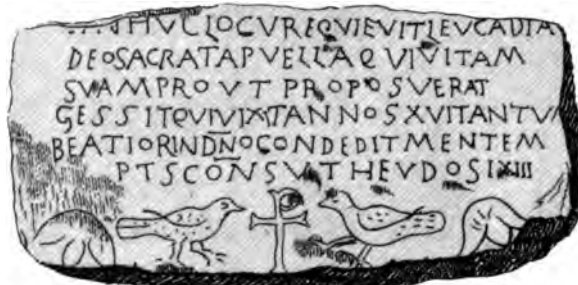 ....NHVCLOCVREQVIEVITLEVCADIA
DEOSACRATAPVELLAQVIVITAM
SVAMPROVTPROPOSVERAT
GESSITQVIVIXTANNOSXVITANTV
BEATIORINDN̅OCONDEDITMENTEM
PTSCO̅NSVTHEVDOSIXIII